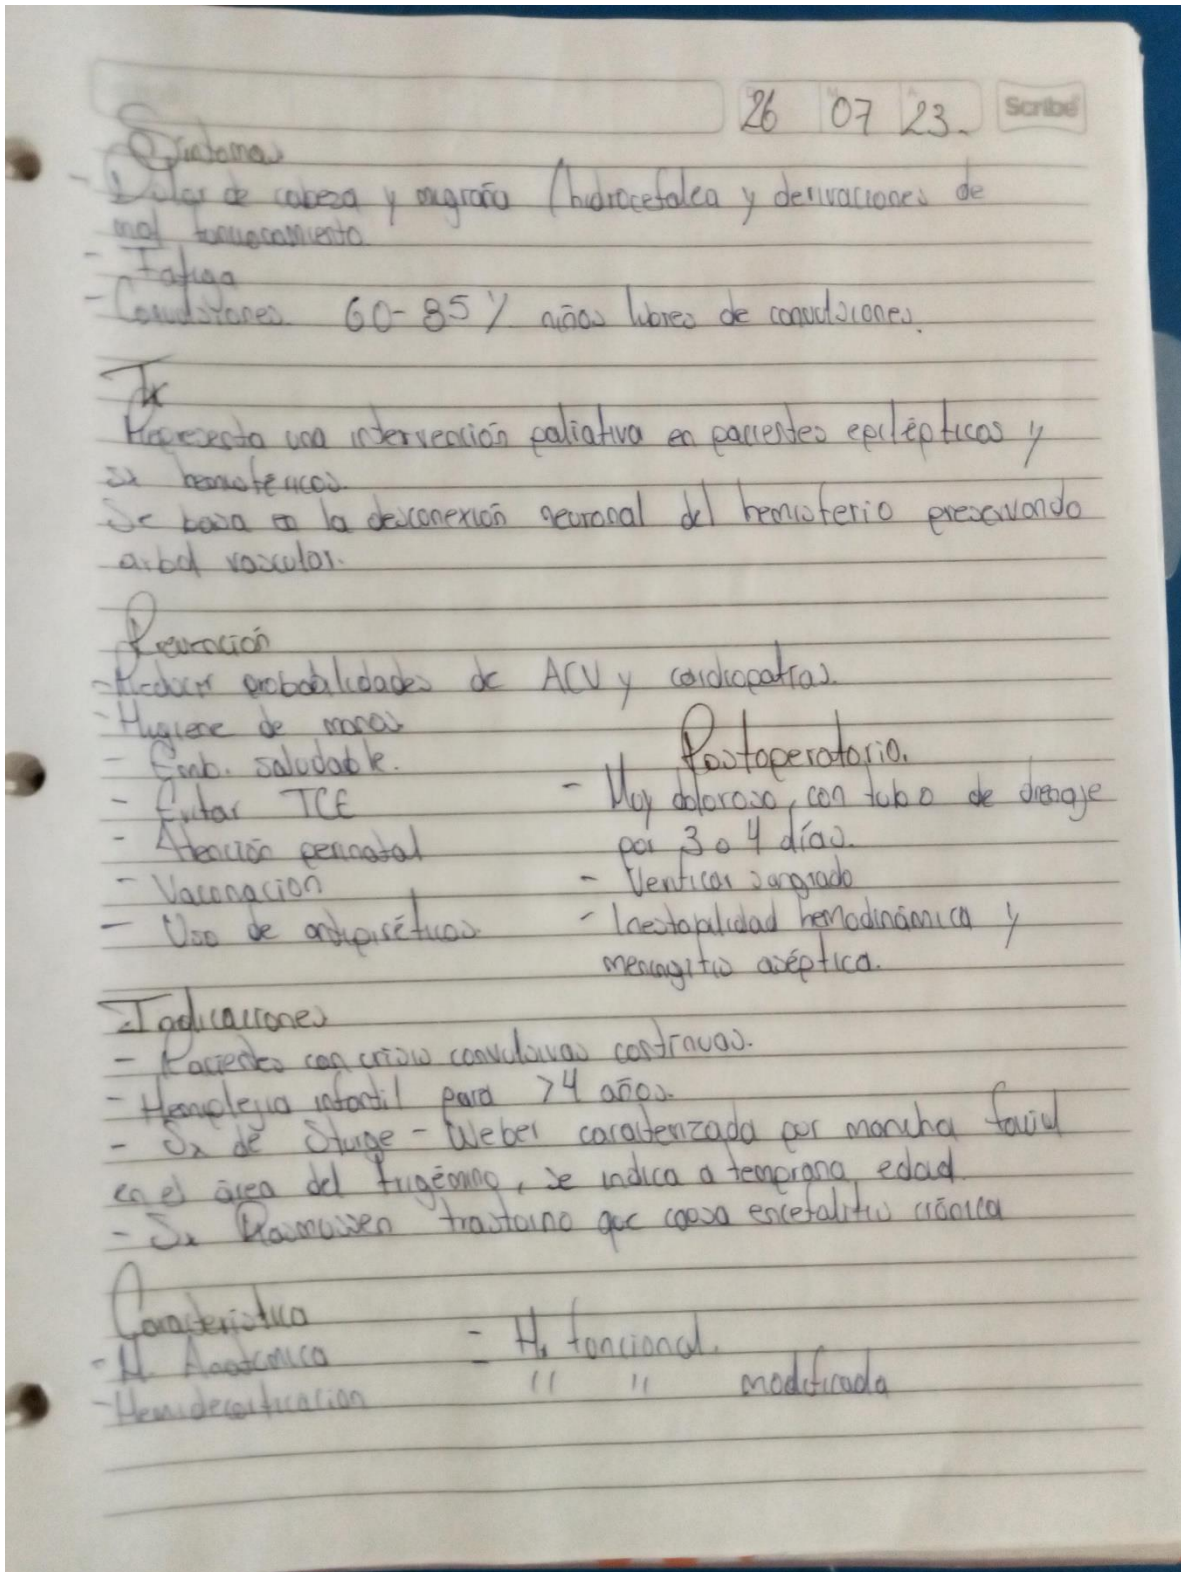 26 07 23.
Scribe
Síntomas
- Dolor de cabeza y migraña (hidrocefalea y derivaciones de
mal funcionamiento
- Fatiga
- Convulsiones. 60-85% niños libres de convulsiones.
Tx
Representa una intervención paliativa en pacientes epilépticos y
Sx hemisféricos.
Se basa en la desconexión neuronal del hemisferio preservando
arbol vascular.
Prevención
- Reducir probabilidades de ACV y cardiopatías.
- Higiene de manos
- Emb. saludable.
- Evitar TCE
- Atención perinatal
- Vacunación
- Uso de antipiréticos
Postoperatorio.
- Muy doloroso, con tubo de drenaje
por 3 o 4 días.
- Verificar sangrado
- Inestabilidad hemodinámica y
meningitis aséptica.
Indicaciones
- Pacientes con crisis convulsivas continuas.
- Hemiplejia infantil para >4 años.
- Sx de Sturge-Weber caracterizada por mancha facial
en el área del trigémino, se indica a temprana edad
- Sx Rasmussen trastorno que causa encefalitis crónica
Característica
- H. Anatómica
- Hemidecorticación
- H. funcional.
" " modificada